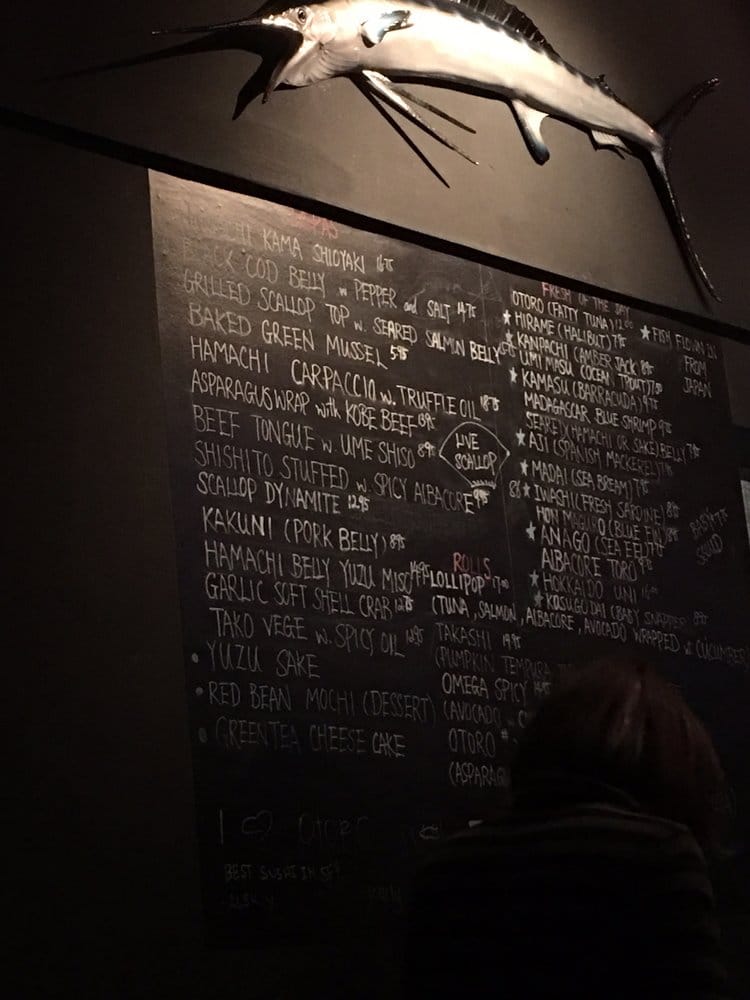 KAMA SHIOYAKI 16.75
BLACK COD BELLY w PEPPER and SALT 14.75
GRILLED SCALLOP TOP w. SEARED SALMON BELLY
BAKED GREEN MUSSEL 5.95
HAMACHI CARPACCIO w. TRUFFLE OIL 18.75
ASPARAGUS WRAP with KOBE BEEF
BEEF TONGUE w. UME SHISO 8.95
SHISHITO STUFFED w. SPICY ALBACORE 9.95
SCALLOP DYNAMITE 12.95
KAKUNI (PORK BELLY) 8.95
HAMACHI BELLY YUZU MISO 14.95
GARLIC SOFT SHELL CRAB 12.75
TAKO VEGE w. SPICY OIL
• YUZU SAKE
• RED BEAN MOCHI (DESSERT)
• GREEN TEA CHEESE CAKE
LIVE
SCALLOP
FRESH OF THE DAY
OTORO (FATTY TUNA) 12.00
★ HIRAME (HALIBUT)
★ KANPACHI (AMBER JACK)
UMI MASU (OCEAN TROUT)
★ KAMASU (BARRACUDA)
MADAGASCAR BLUE SHRIMP
SEARED (HAMACHI OR SAKE) BELLY
★ AJI (SPANISH MACKEREL)
★ MADAI (SEA BREAM)
★ IWACHI (FRESH SARDINE)
HON MAGURO (BLUE FIN)
★ ANAGO (SEA EEL)
ALBACORE TORO
★ HOKKAIDO UNI
★ KOSUGODAI (BABY SNAPPER
★ FISH FLOWN IN
FROM
JAPAN
BABY
SQUID
ROLLS
LOLLIPOP 17.00
(TUNA, SALMON, ALBACORE, AVOCADO WRAPPED w. CUCUMBER
TAKASHI 19.95
(PUMPKIN TEMPURA
OMEGA SPICY
(AVOCADO
OTORO
(ASPARAG
I ♡ OTORO
BEST SUSHI IN SF!